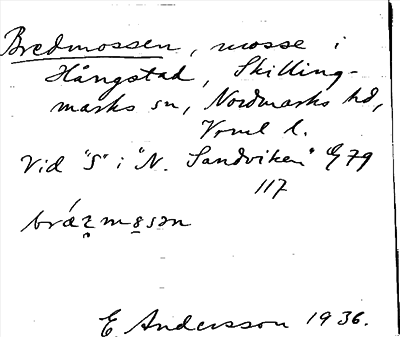 Bredmossen, mosse i
Hångstad, Skilling-
marks sn, Nordmarks hd,
Vrml l.
Vid "S" i "N. Sandviken" E 79
117
E Andersson 1936.